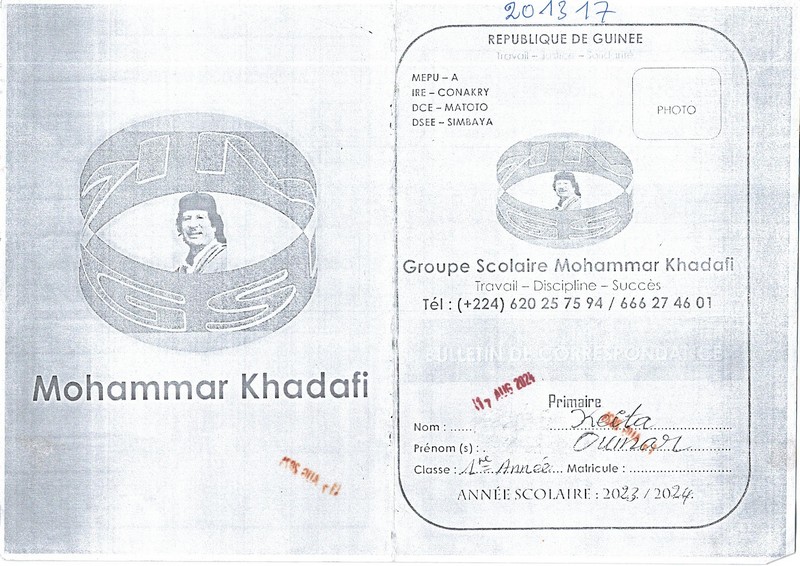 GS
Mohammar Khadafi
201317
REPUBLIQUE DE GUINEE
Travail – Justice – Solidarité
MEPU – A
IRE – CONAKRY
DCE – MATOTO
DSEE – SIMBAYA
PHOTO
GS
Groupe Scolaire Mohammar Khadafi
Travail – Discipline – Succès
Tél : (+224) 620 25 75 94 / 666 27 46 01
BULLETIN DE CORRESPONDANCE
17 AUG 2024
Primaire
Nom : Keita
Prénom (s) : Oumar
Classe : 1ère Année Matricule :
ANNÉE SCOLAIRE : 2023 / 2024